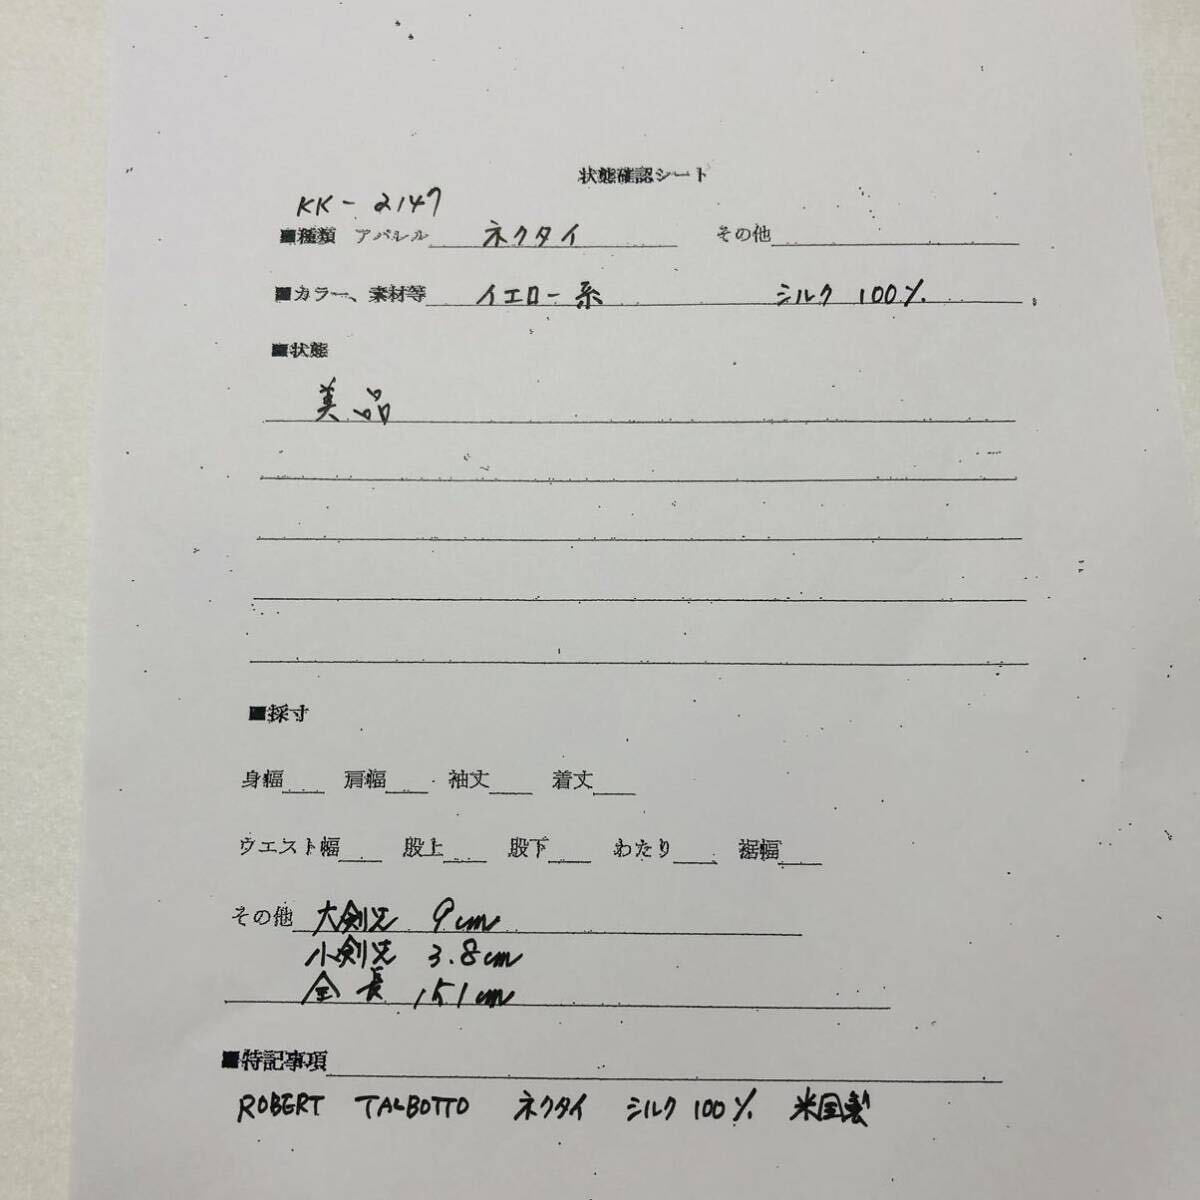 状態確認シート
KK-2147
■種類 アパレル ネクタイ その他
■カラー、素材等 イエロー系 シルク 100%
■状態
美品
■採寸
身幅 肩幅 袖丈 着丈
ウエスト幅 股上 股下 わたり 裾幅
その他 大剣先 9cm
小剣先 3.8cm
全長 151cm
■特記事項
ROBERT TALBOTTO ネクタイ シルク 100% 米国製